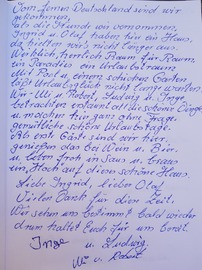 Vom fernen Deutschland sind wir
gekommen,
die Kunde wir vernommen,
Ingrid u. Olaf haben hier ein Haus,
da hielten wir's nicht länger aus.
Wirklich herrlich Raum für Raum,
ein Paradies ein Urlaubstraum
Mit Pool u. einem schicken Garten
läßt Urlaubsglück nicht lange warten.
Wir, u. Robert, Ludwig u. Inge
betrachten entspannt all die schönen Dinge
u. machen hier ganz ohne Frage
gemütliche schöne Urlaubstage.
Als erste Gäste sind wir hier
genießen das bei Wein u. Bier.
u. leben froh in Saus u. Braus
ein Hoch auf dieses schöne Haus.
Liebe Ingrid, lieber Olaf
Vielen Dank für diese Zeit.
Wir sehen uns bestimmt bald wieder
drum haltet Euch für uns bereit.
Inge u. Ludwig
u. Robert